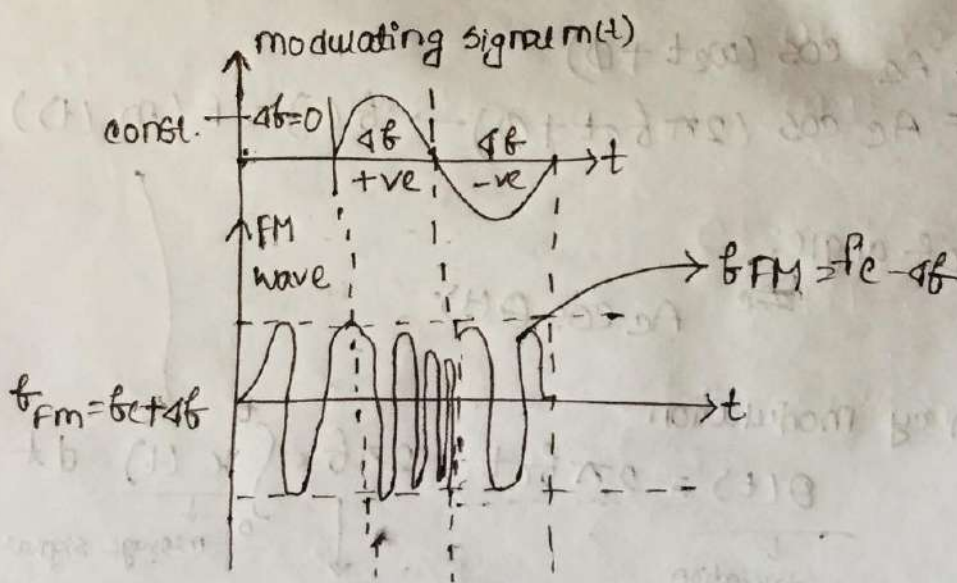 modulating signal m(t)
const. Δf=0
Δf Δf
+ve -ve
t
FM
wave
f FM = fc - Δf
f FM = fc + Δf
t